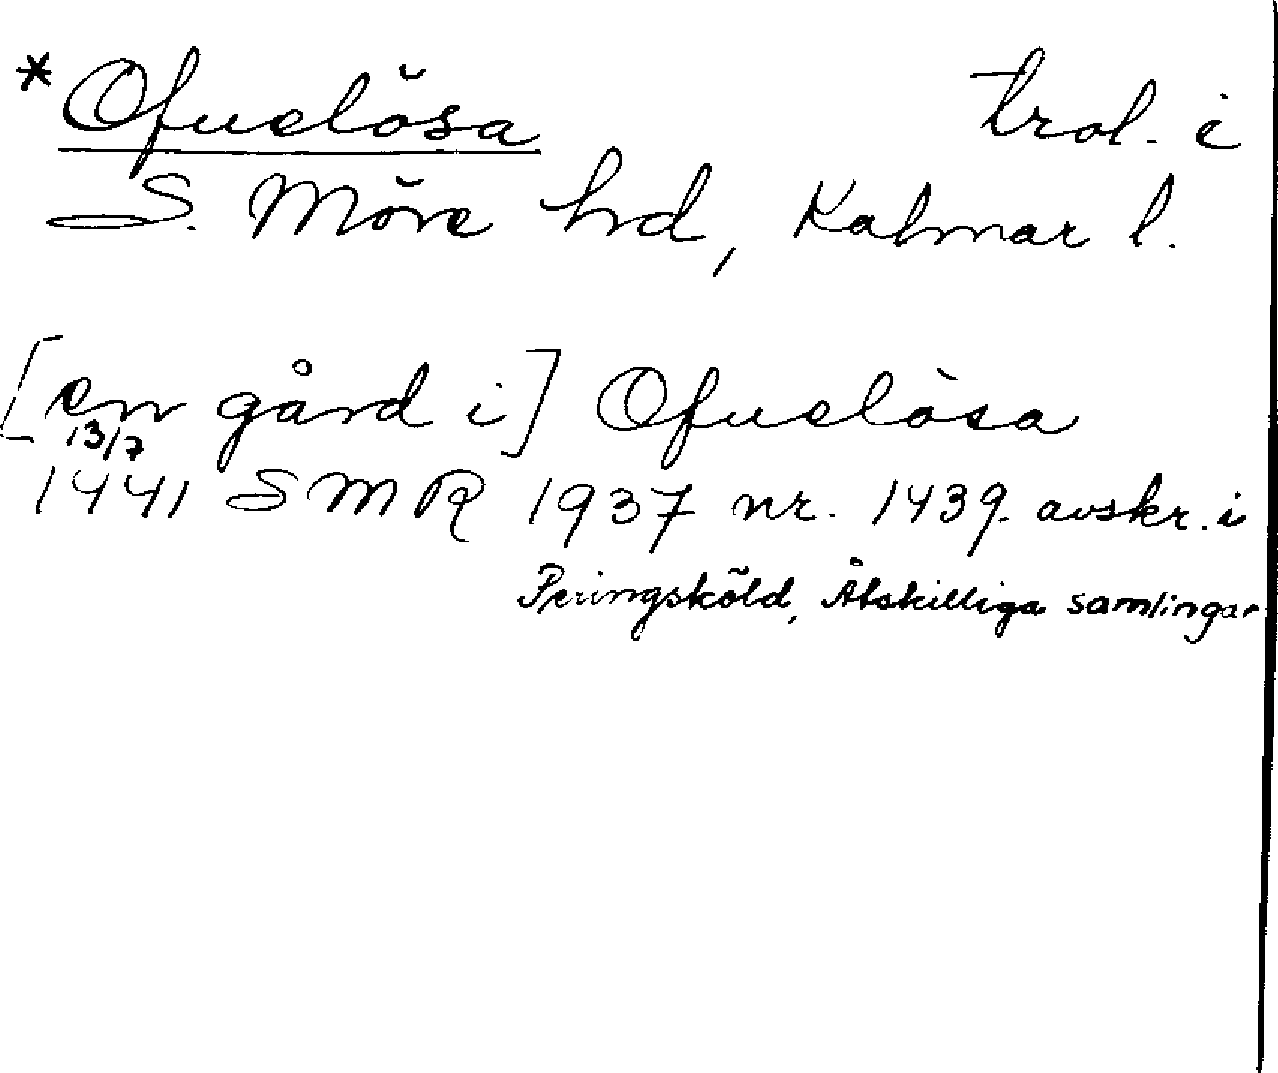 *Ofuelösa trol. i
S. Möre hd, Kalmar l.
[en gård i] Ofuelösa
13/7
1441 SMR 1937 nr. 1439. avskr. i
Peringsköld, Åtskilliga samlingar